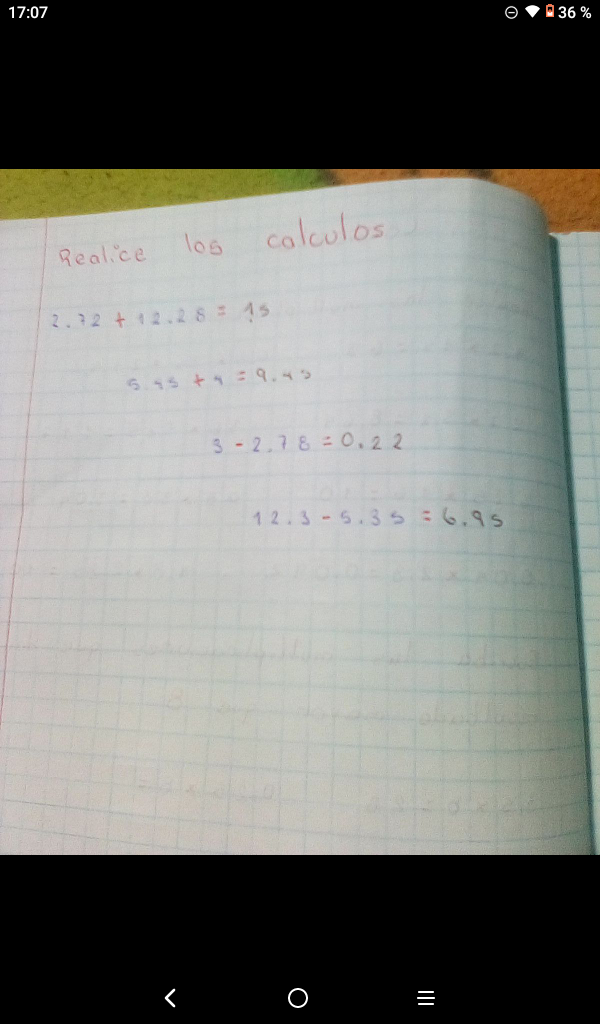 17:07
36 %
Realice los calculos
2.72 + 12.28 = 15
5.45 + 4 = 9.45
3 - 2.78 = 0.22
12.3 - 5.35 = 6.95